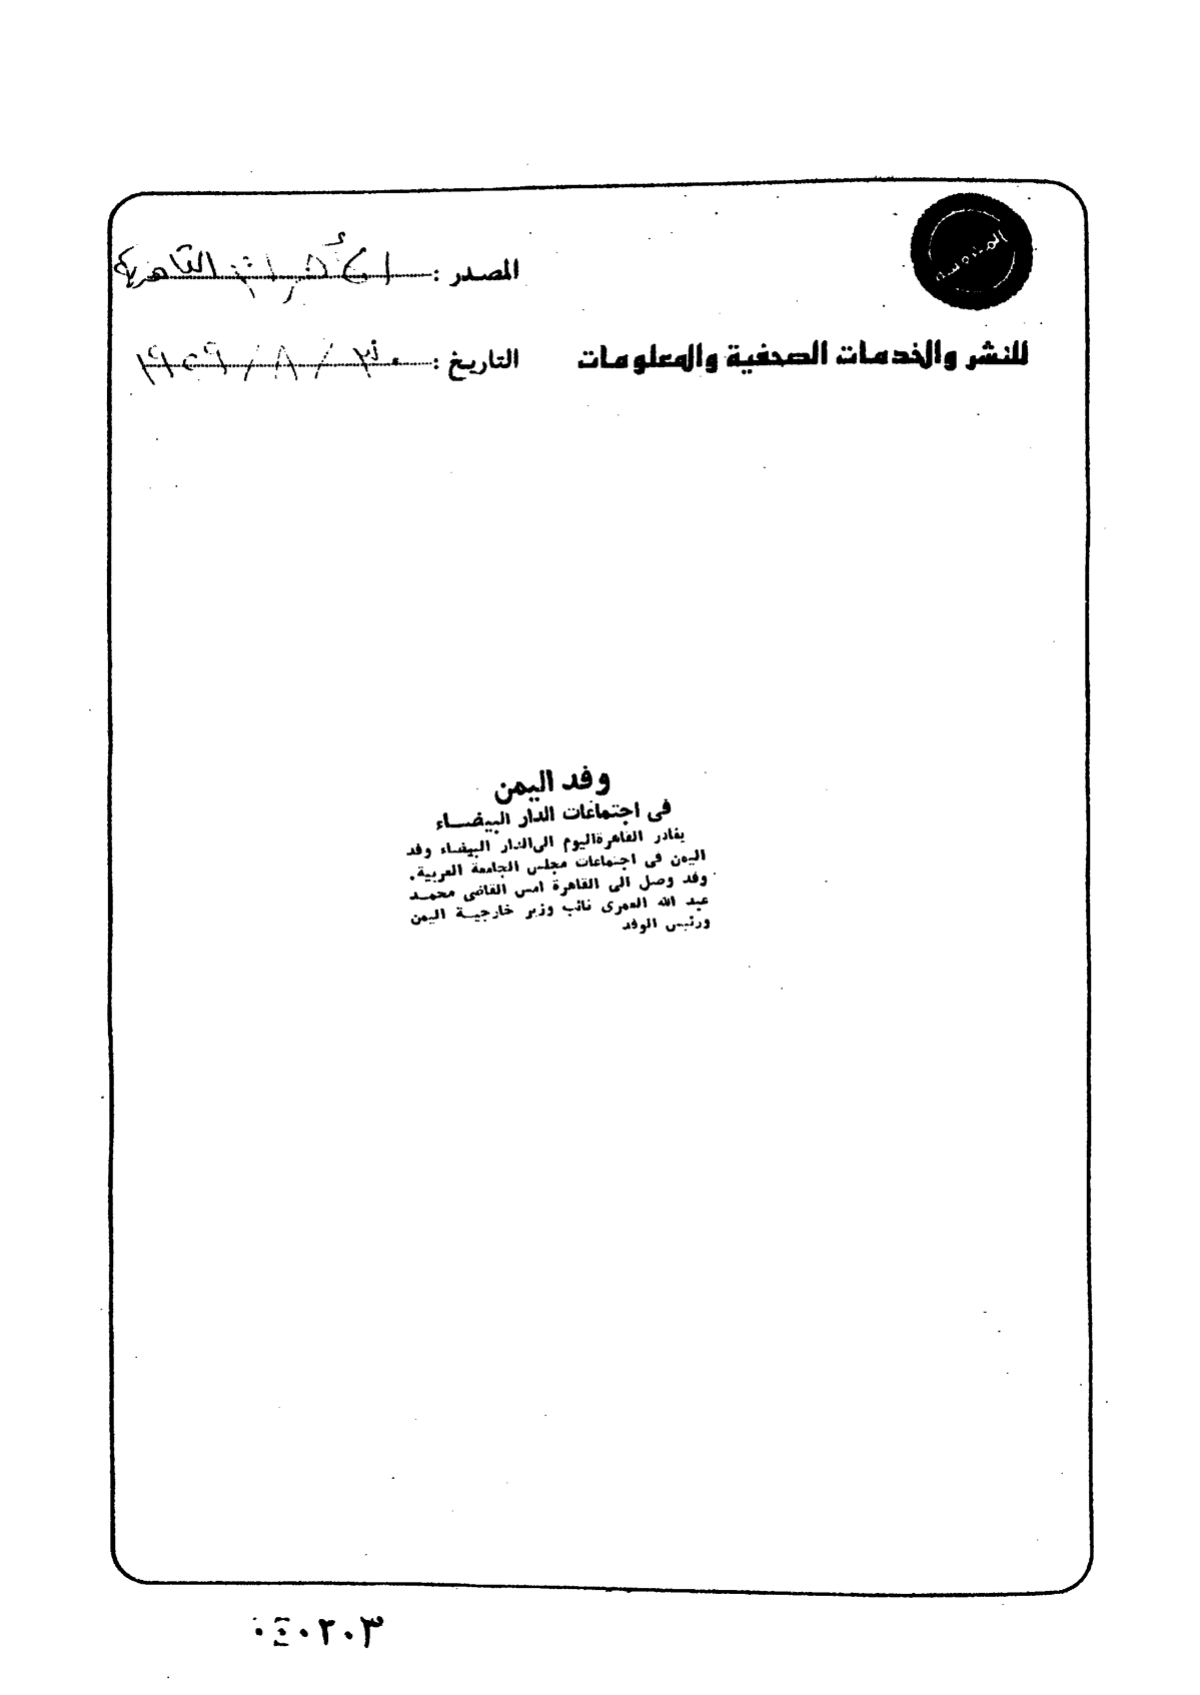 المصدر : الأهرام القاهرية
للنشر والخدمات الصحفية والمعلومات
التاريخ : ٣٠ / ٨ / ١٩٥٩
وفد اليمن
فى اجتماعات الدار البيضـــاء
يغادر القاهرة اليوم الى الدار البيضاء وفد
اليمن فى اجتماعات مجلس الجامعة العربية.
وقد وصل الى القاهرة امس القاضى محمـــد
عبد الله العمرى نائب وزير خارجيـــة اليمن
ورئيس الوفد